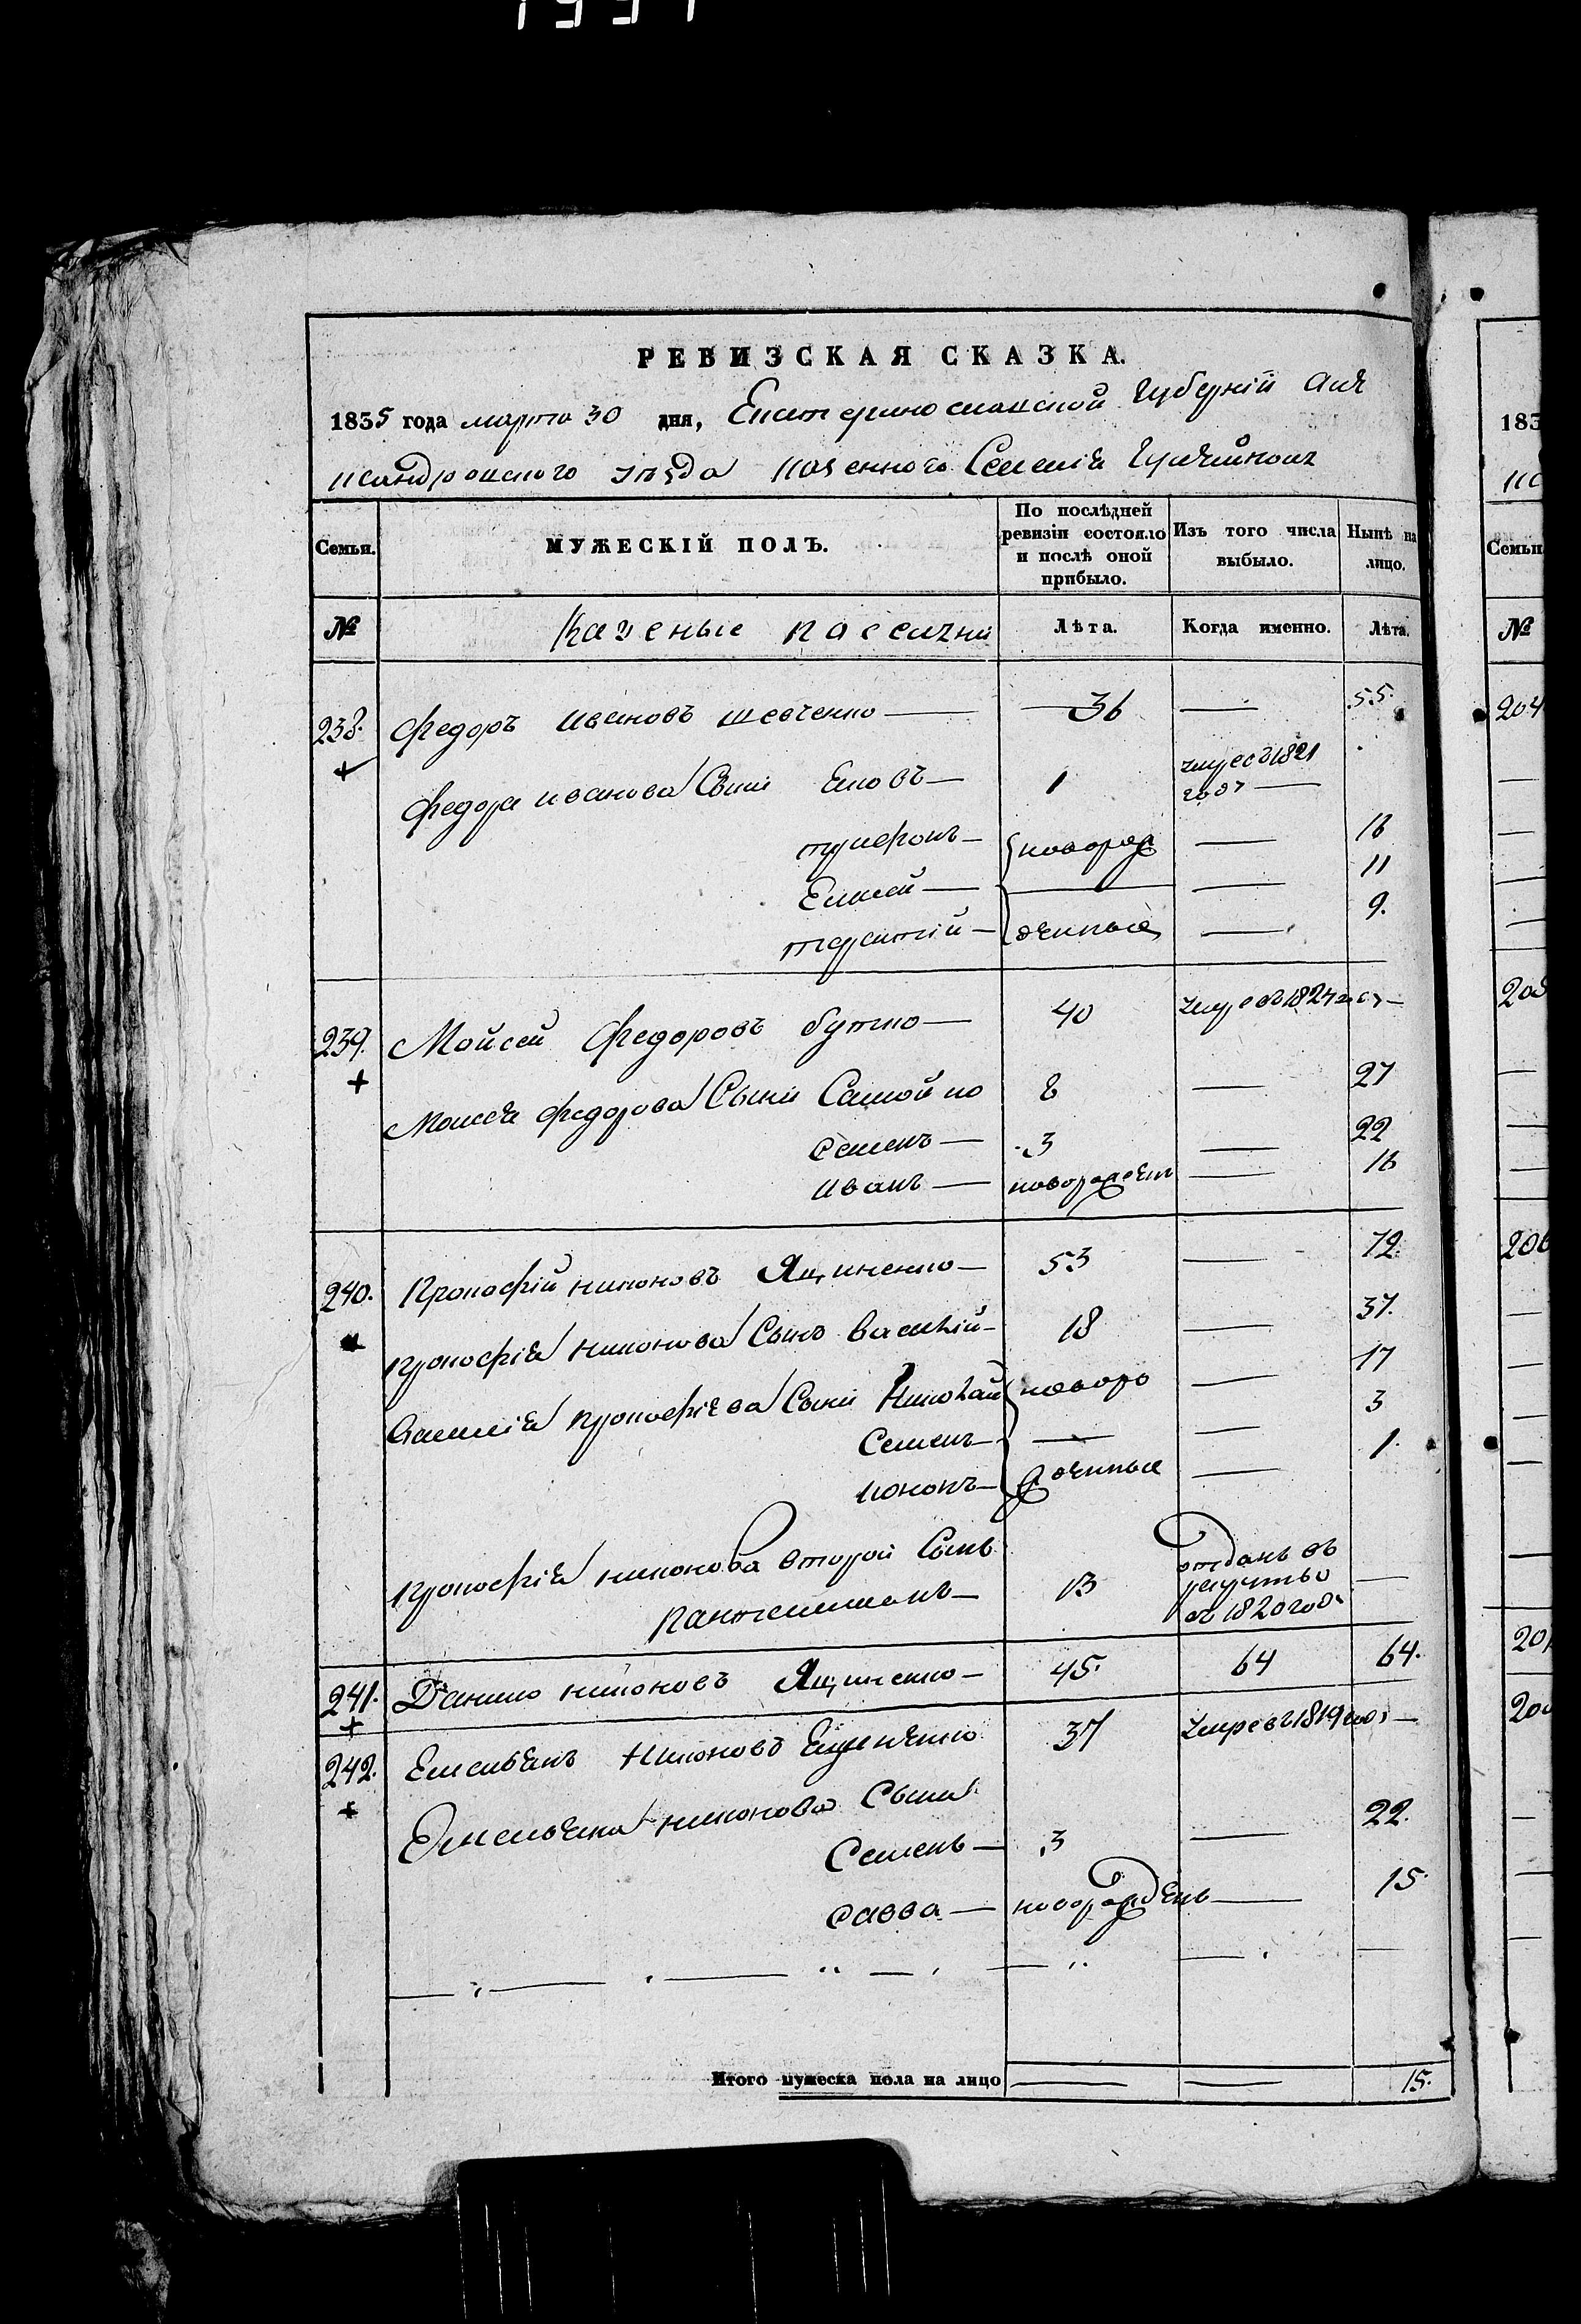 РЕВИЗСКАЯ СКАЗКА.
1835 года марта 30 дня, Екатеринославской Губерніи Алѣ
ксандровскаго уѣзда казеннаго Селенія
Семьи. МУЖЕСКІЙ ПОЛЪ. По послѣдней ревизіи состояло и послѣ оной прибыло. Изъ того числа выбыло. Нынѣ на лицо.
№ Казеные поселяни Лѣта. Когда именно. Лѣта.
238. Федоръ Ивановъ Шевченко — 36 — 55.
Федора Иванова Сыни Яковъ — 1 умре въ 1821 годѣ —
Трифонъ — новорож — 16
Елисей — — — 11
Терентій — денные — 9.
239. Мойсей Федоровъ Бутко — 40 умре въ 1824 год —
Моисея Федорова Сыни Самойло 8 — 27
Семенъ — 3 — 22
Иванъ — новорожденъ — 16
240. Прокофій Никоновъ Ященко — 53 — 72.
Прокофія Никонова Сынъ Василій — 18 — 37.
Василія Прокофіева Сыни Николай новоро — 17
Семенъ — — — 3
Кононъ — жденные — 1.
Прокофія Никонова второй Сынъ
Пантелимонъ — 13 отданъ въ рекрутъ въ 1820 годѣ —
241. Данило Никоновъ Ященко — 45. 64 64.
242. Емельянъ Никоновъ 37 умре въ 1819 годѣ —
Емельяна Никонова Сыни
Семенъ — 3 — 22.
Савва — новорожденъ — 15.
Итого мужеска пола на лицо — — 15.
183
Семьи
№
204